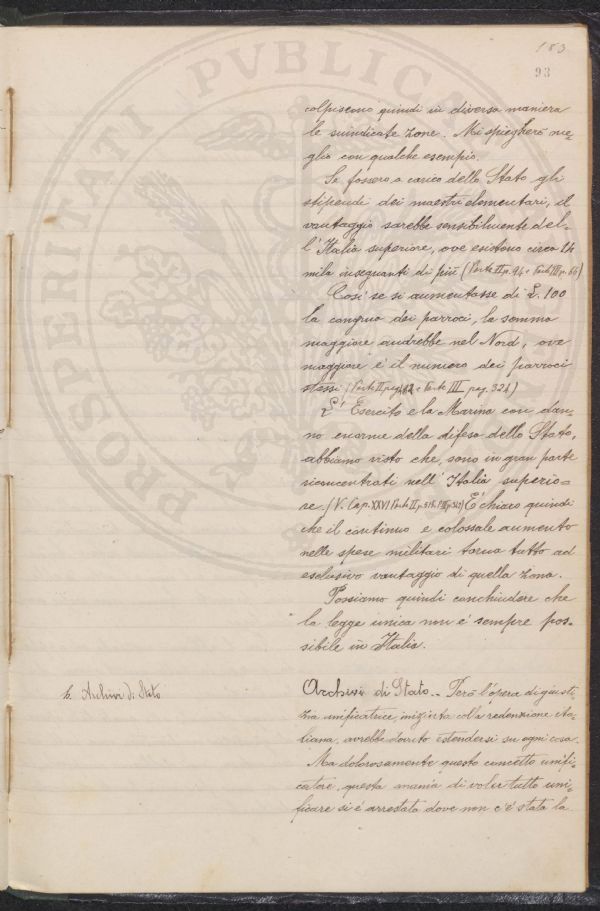 183
93
colpiscono quindi in diversa maniera
le suindicate zone. Mi spiegherò me=
glio con qualche esempio.
Se fossero a carico dello Stato gli
stipendi dei maestri elementari, il
vantaggio sarebbe sensibilmente del=
l'Italia superiore, ove esistono circa 14
mila insegnanti di più (Parte II p. 94 e Parte III p. 66)
Così se si aumentasse di L. 100
la congrua dei parroci, la somma
maggiore andrebbe nel Nord, ove
maggiore è il numero dei parroci
stessi (Parte II pag. e Parte III pag. 324)
L'Esercito e la Marina con dan=
no enorme della difesa dello Stato,
abbiamo visto che, sono in gran parte
riconcentrati nell'Italia superio=
re. (V. Cap. XXVI Parte II p. ) È chiaro quindi
che il continuo e colossale aumento
nelle spese militari torna tutto ad
esclusivo vantaggio di quella zona.
Possiamo quindi conchiudere che
la legge unica non è sempre pos=
sibile in Italia.
6. Archivi di Stato
Archivi di Stato.- Però l'opera di giusti=
zia unificatrice, iniziata colla redenzione ita=
liana, avrebbe dovuto estendersi su ogni cosa.
Ma dolorosamente questo concetto unifi=
catore, questa mania di voler tutto uni=
ficare si è arrestata dove non c'è stata la
PROSPERITATI PUBLICAE